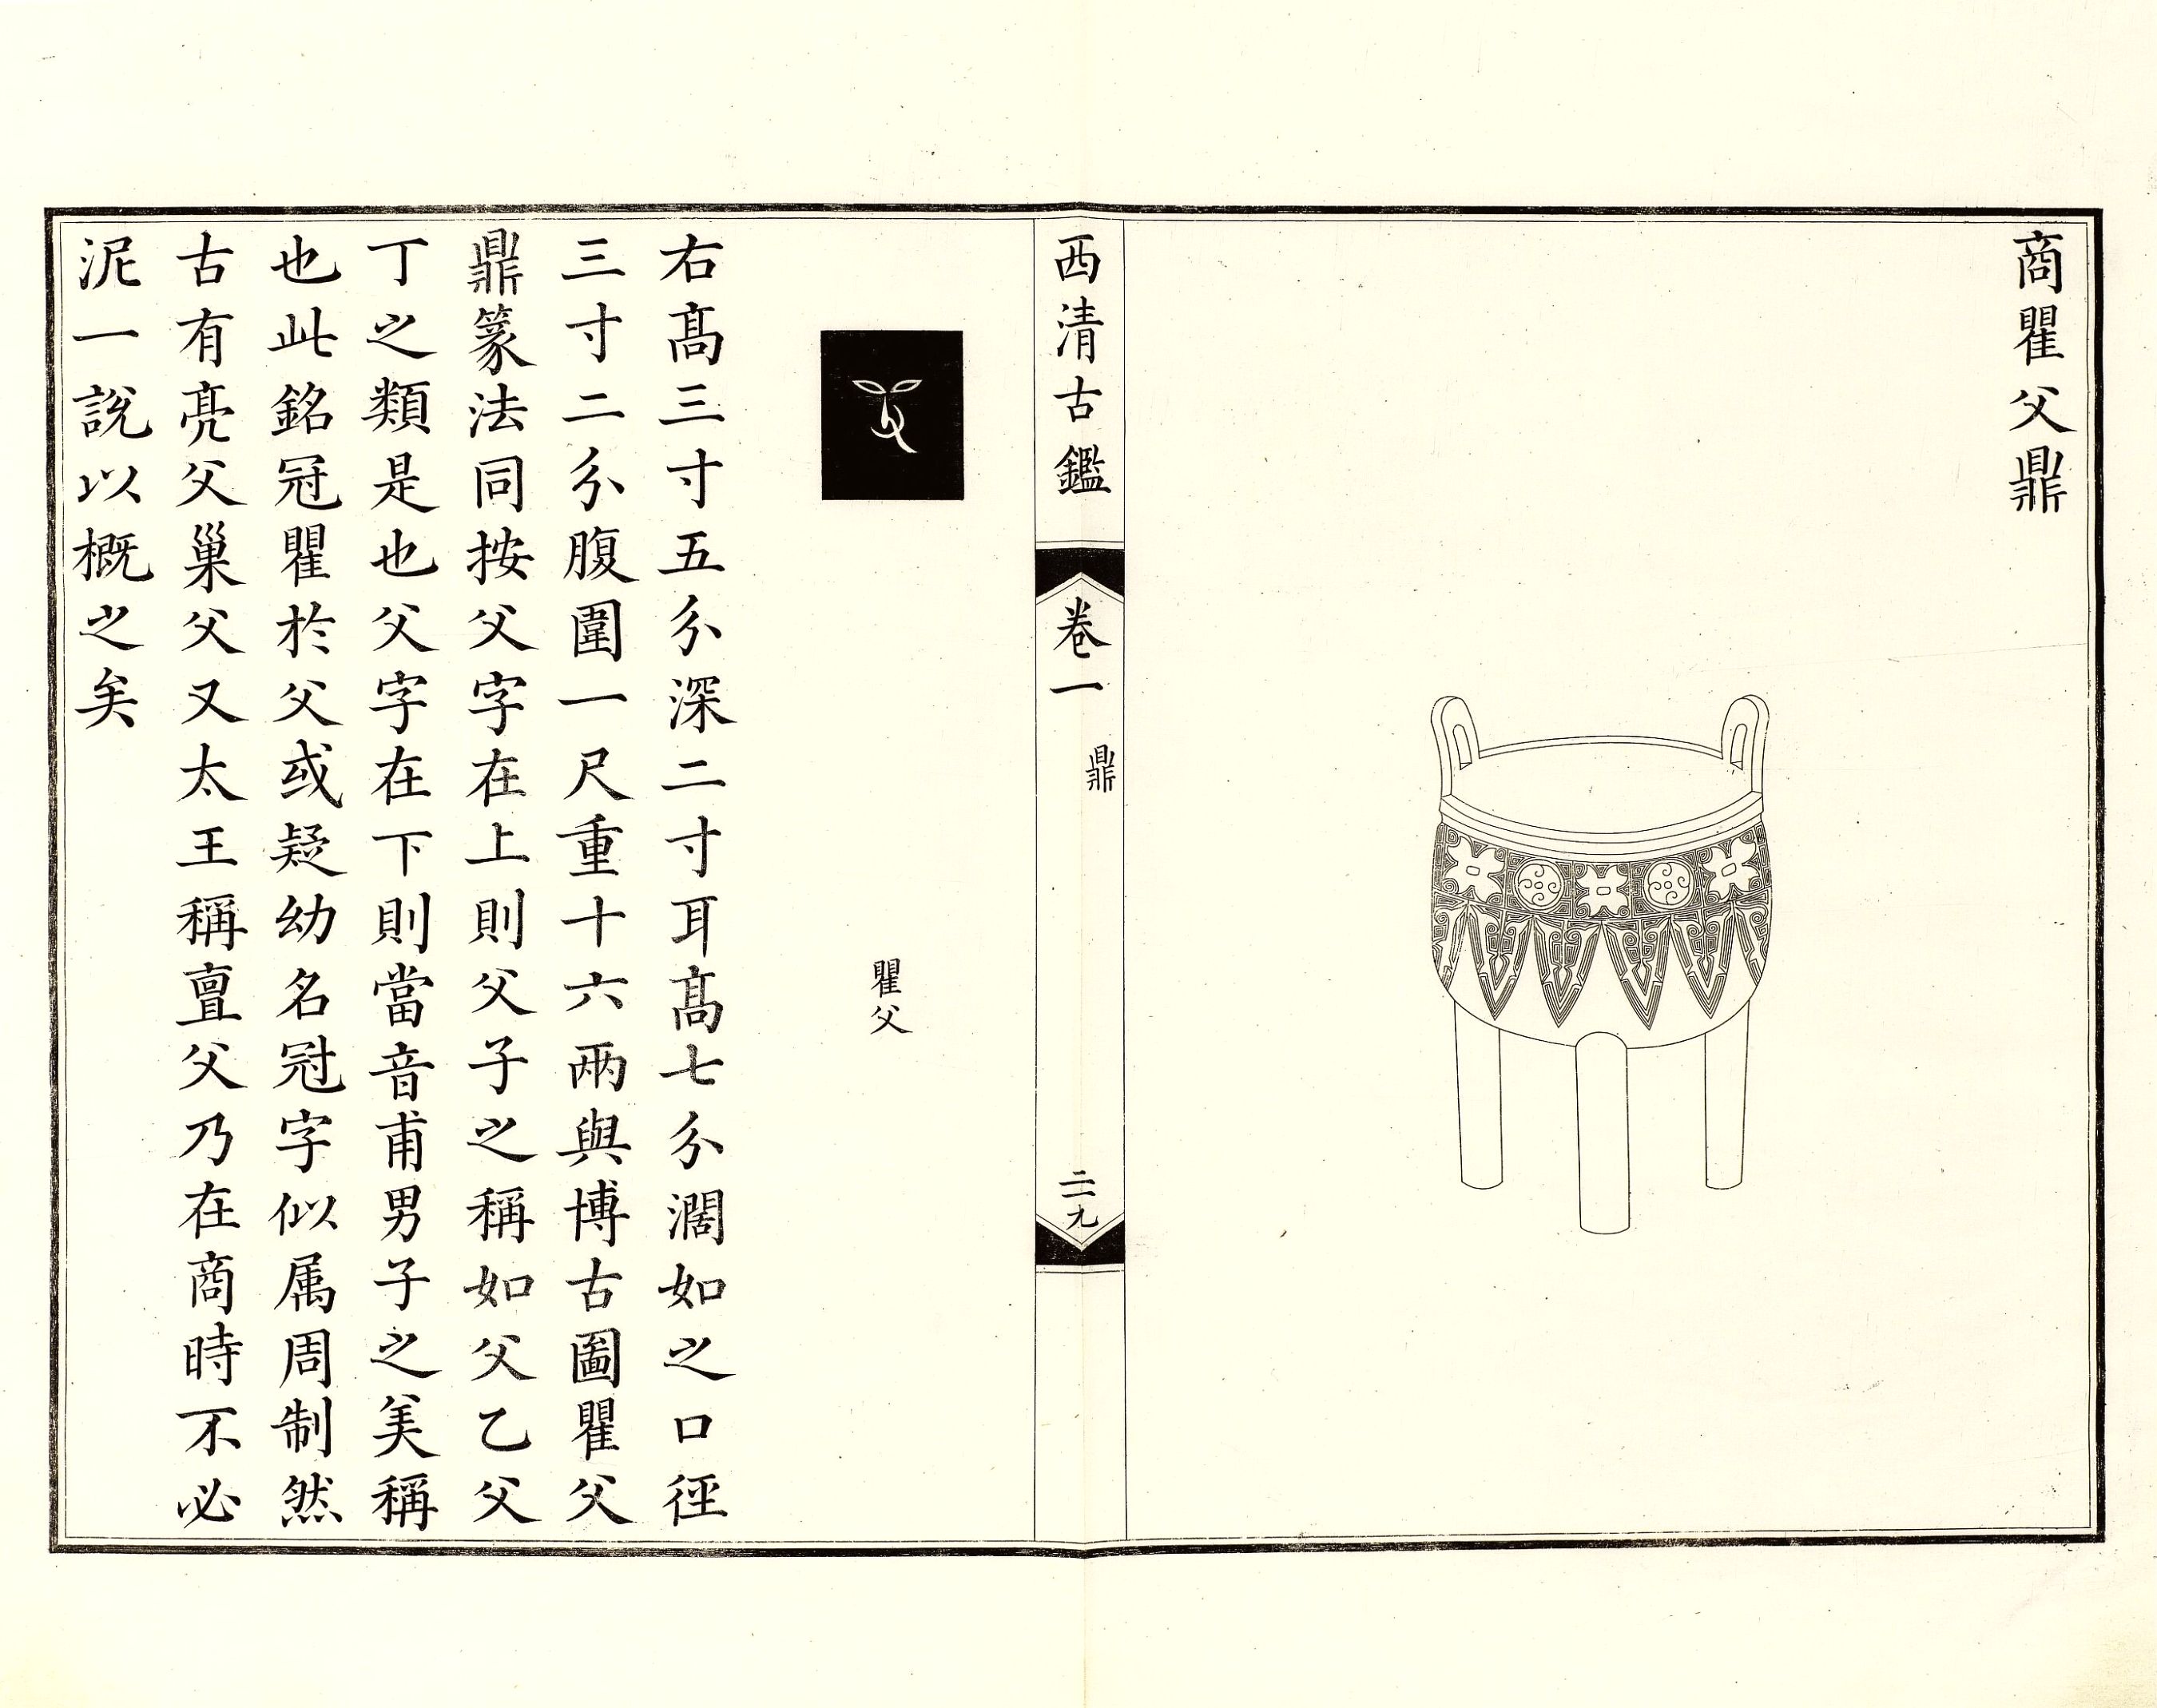 商瞿父鼎
西清古鑑
卷一
鼎
二九
瞿父
右髙三寸五分深二寸耳髙七分濶如之口徑
三寸二分腹圍一尺重十六兩與博古圖瞿父
鼎篆法同按父字在上則父子之稱如父乙父
丁之類是也父字在下則當音甫男子之美稱
也此銘冠瞿於父或疑幼名冠字似属周制然
古有亮父巢父又太王稱亶父乃在商時不必
泥一說以概之矣